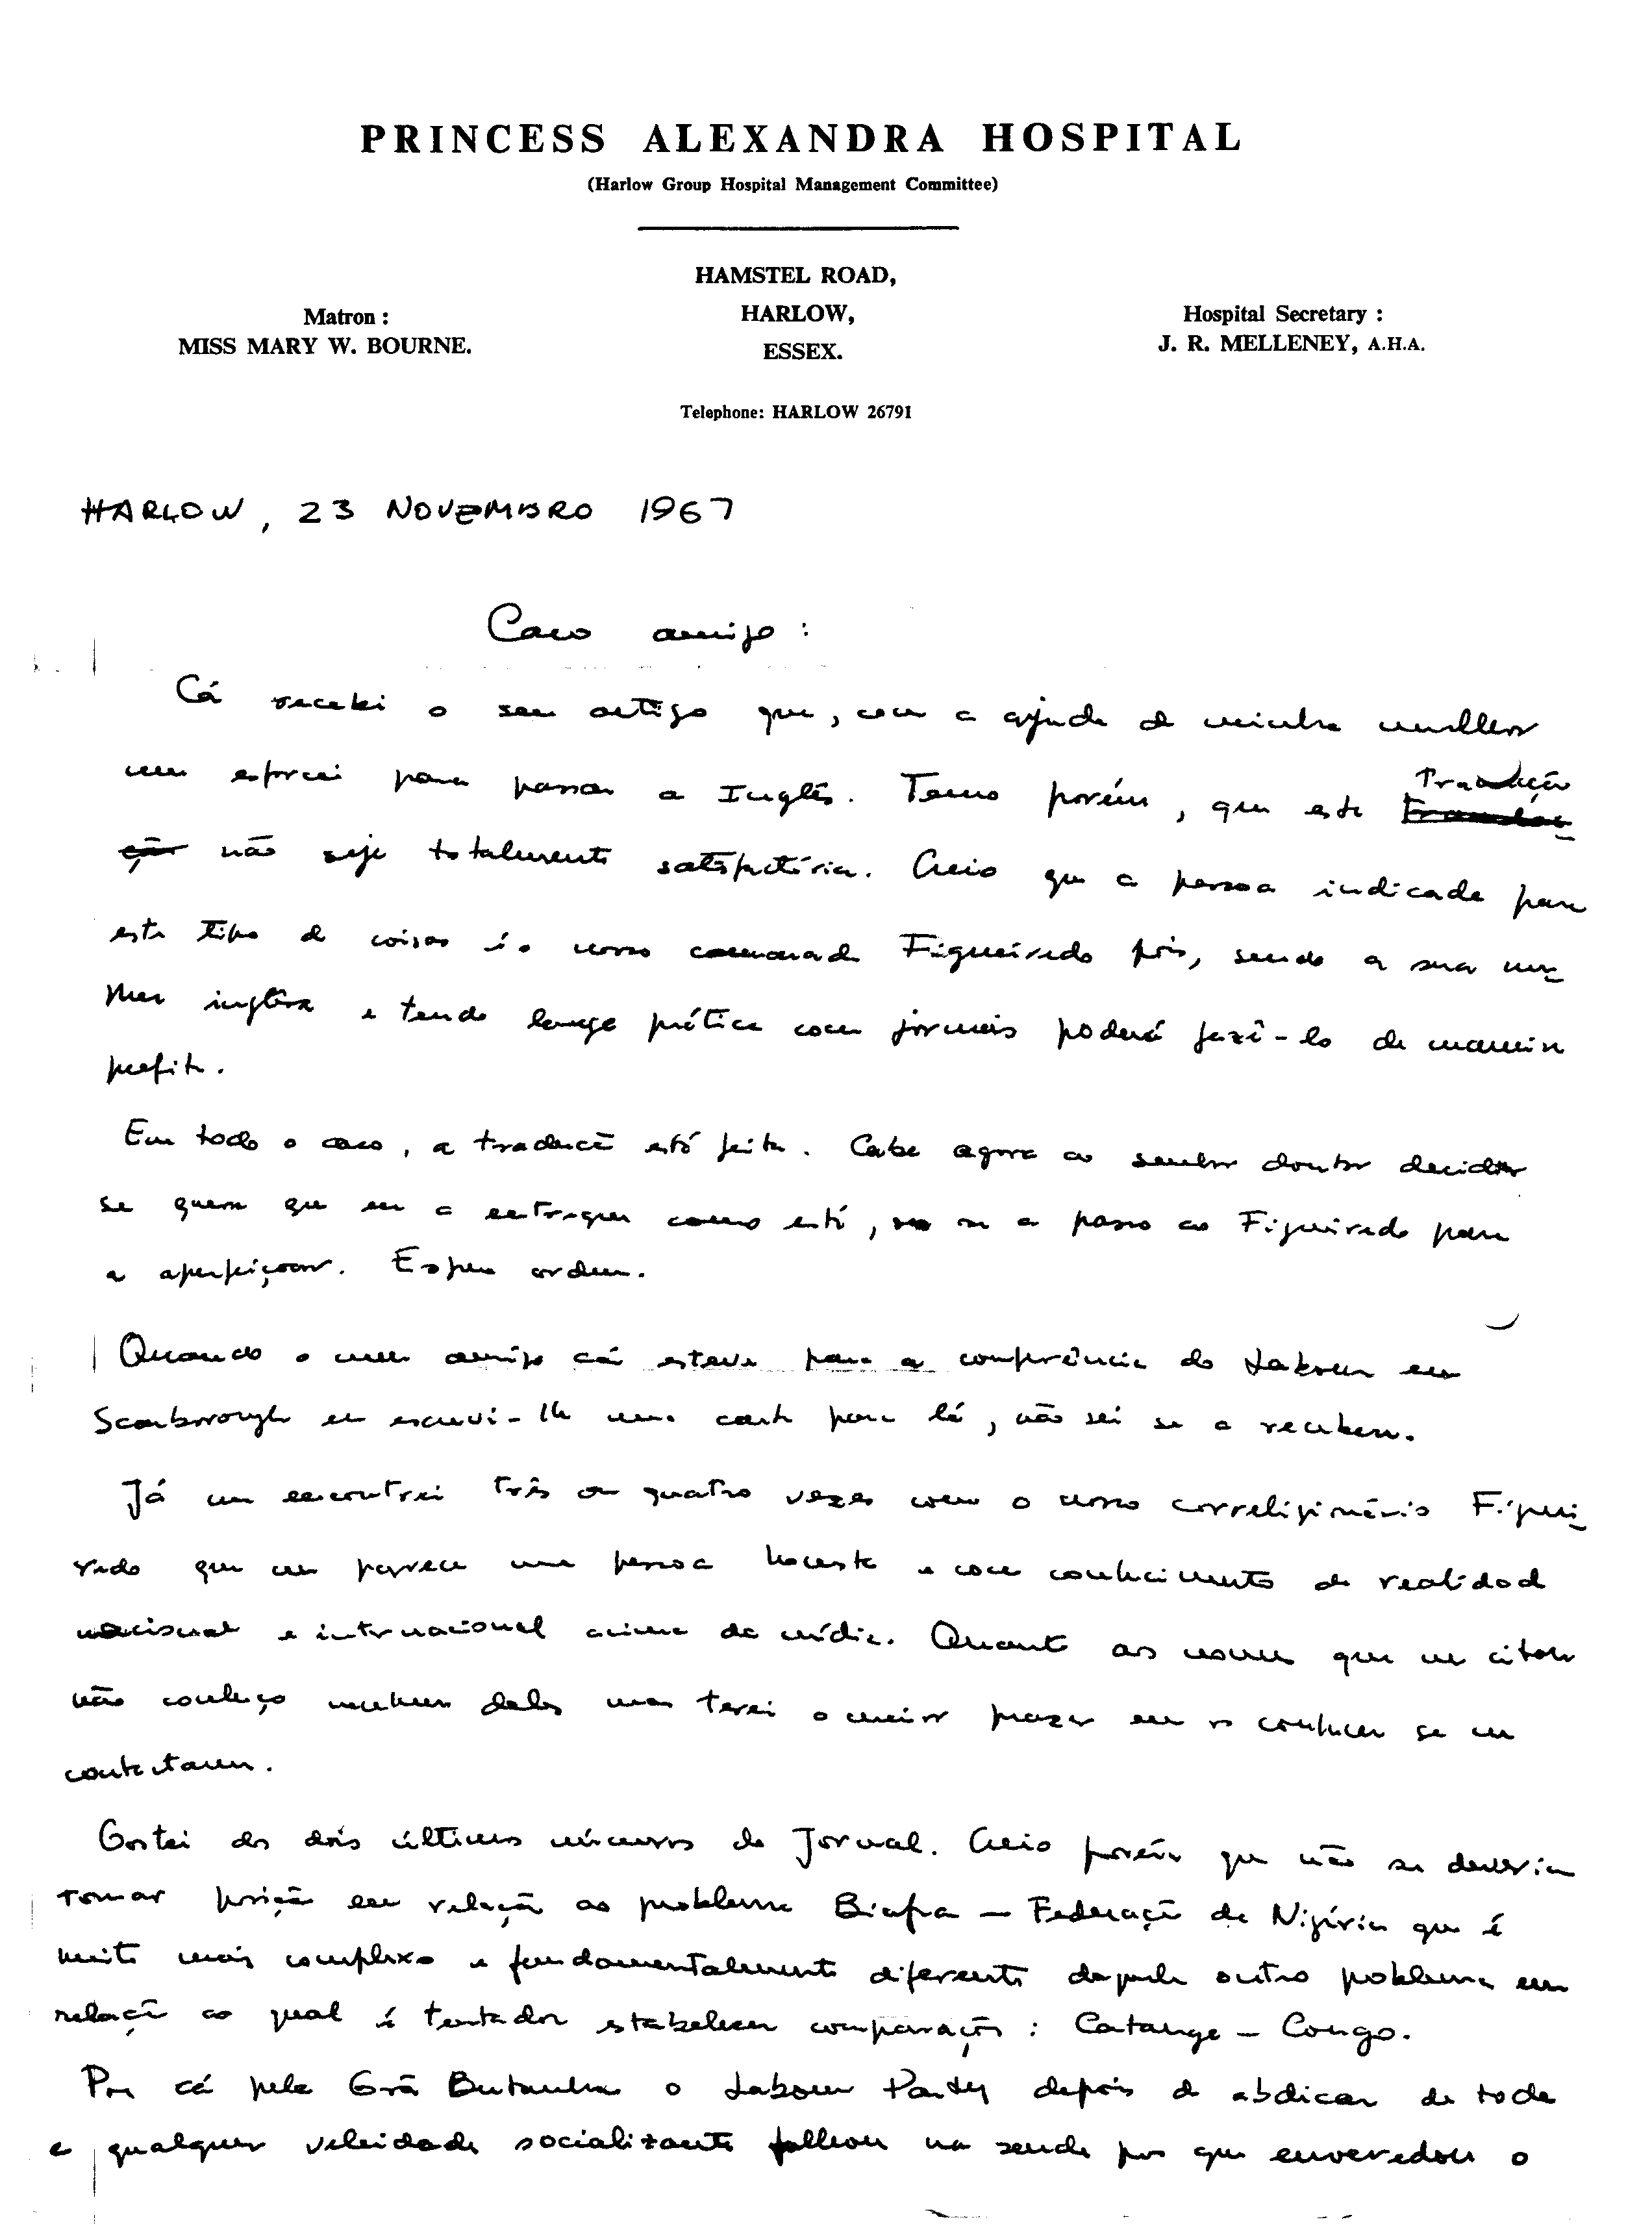 PRINCESS ALEXANDRA HOSPITAL
(Harlow Group Hospital Management Committee)
HAMSTEL ROAD,
HARLOW,
ESSEX.
Matron :
MISS MARY W. BOURNE.
Hospital Secretary :
J. R. MELLENEY, A.H.A.
Telephone: HARLOW 26791
HARLOW, 23 NOVEMBRO 1967
Caro amigo :
Cá recebi o seu artigo que, com a ajuda de minha mulher
me esforcei para passar a Inglês. Temo porém, que esta Tradução
não seja totalmente satisfatória. Creio que a pessoa indicada para
este tipo de coisas é o nosso camarada Figueiredo pois, sendo a sua mu-
lher inglesa e tendo longa prática com jornais poderá fazê-lo de maneira
perfeita.
Em todo o caso, a tradução está feita. Cabe agora ao senhor doutor decidir
se quere que eu a entregue como está, ou se a passo ao Figueiredo para
a aperfeiçoar. Espero ordem.
Quando o meu amigo cá esteve para a conferência do Labour em
Scarborough eu escrevi-lhe uma carta para lá, não sei se a recebeu.
Já me encontrei três ou quatro vezes com o nosso correligionário Figuei-
redo que me parece uma pessoa honesta e com conhecimento da realidade
nacional e internacional acima da média. Quanto aos nomes que me citou
não conheço nenhum deles mas terei o maior prazer em os conhecer se me
contactarem.
Gostei dos dois últimos números do Jornal. Creio porém que não se deveria
tomar posição em relação ao problema Biafra — Federação da Nigéria que é
muito mais complexo e fundamentalmente diferente daquele outro problema em
relação ao qual é tentador estabelecer comparações : Catanga — Congo.
Por cá pela Grã Bretanha o Labour Party depois de abdicar de toda
e qualquer veleidade socializante falhou na senda por que enveredou o